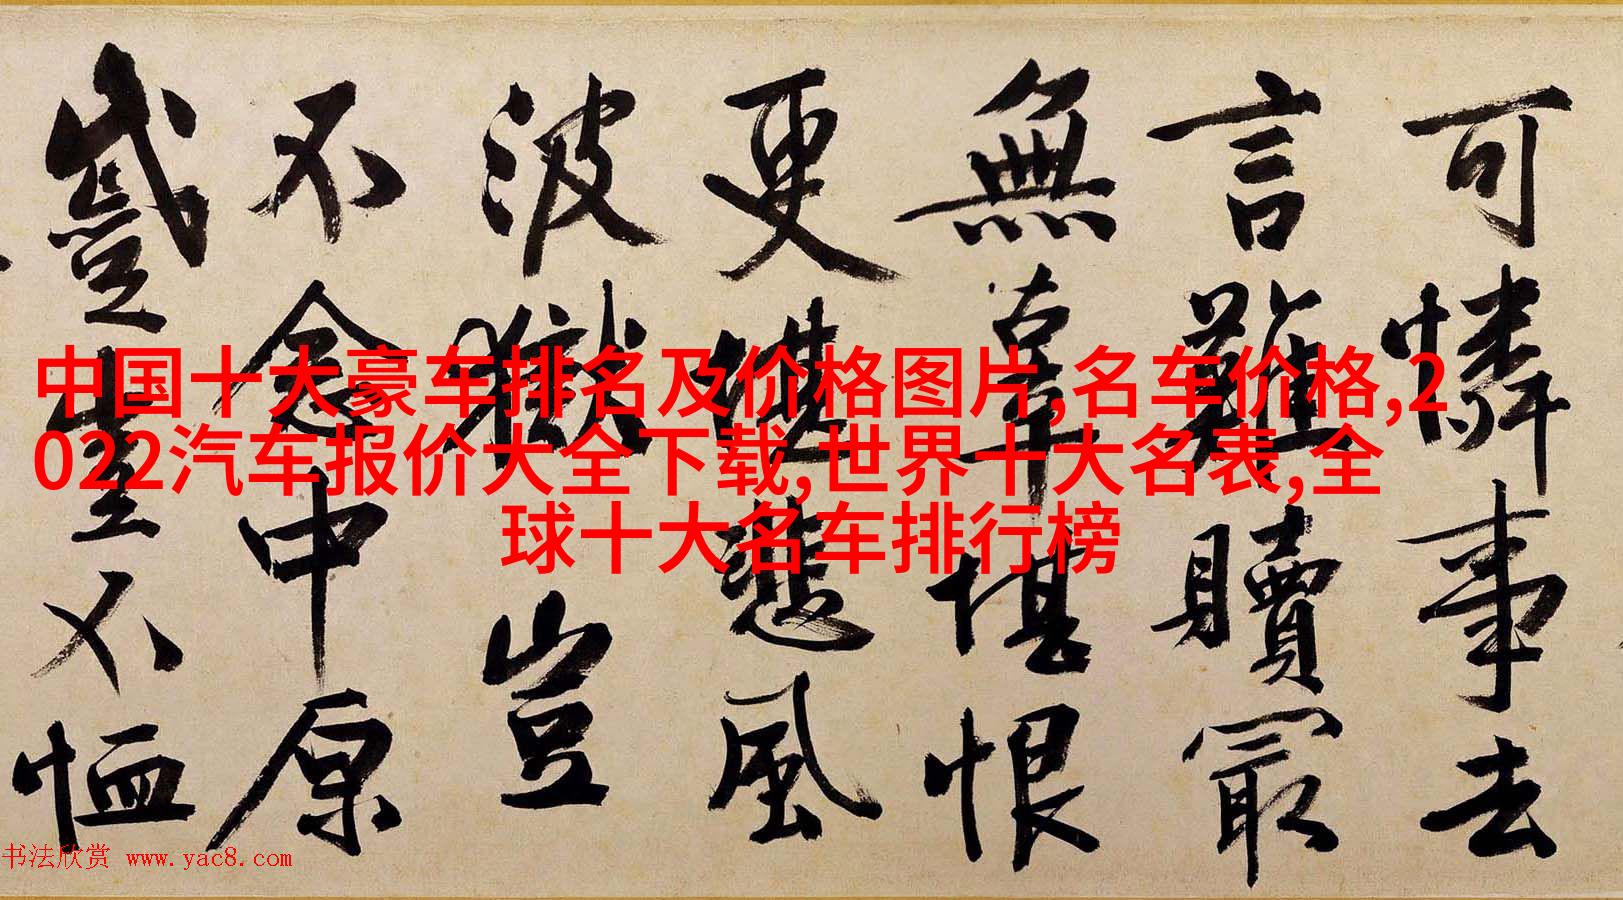 可憐事去
言難贖最
無辜堪恨
更悲風
波獄豈
不念中原
蹙豈不恤
中国十大豪车排名及价格图片,名车价格,2
022汽车报价大全下载,世界十大名表,全
球十大名车排行榜
书法欣赏 www.yac8.com